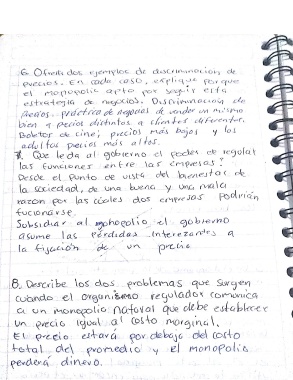 6. Ofresca dos ejemplos de discriminación de
precios. En cada caso, explique porque
el monopolio opto por seguir esta
estrategia de negocios. Discriminación de
Precios: práctica de negocios de vender un mismo
bien a precios distintos a clientes diferentes.
Boletos de cine; precios más bajos y los
adultos pecios más altos.
7. Que le da al gobierno el poder de regular
las funciones entre las empresas?
Desde el punto de vista del bienestar de
la sociedad, de una buena y una mala
razon por las cuales dos empresas podrian
fucionarse.
Subsidiar al monopolio el gobierno
asume las perdidas interezantes a
la fijación de un precio
8. Describe los dos problemas que surgen
cuando el organismo regulador comunica
a un monopolio natural que debe establecer
un precio igual al costo marginal.
El precio estará por debajo del costo
total del promedio y el monopolio
perderá dinero.